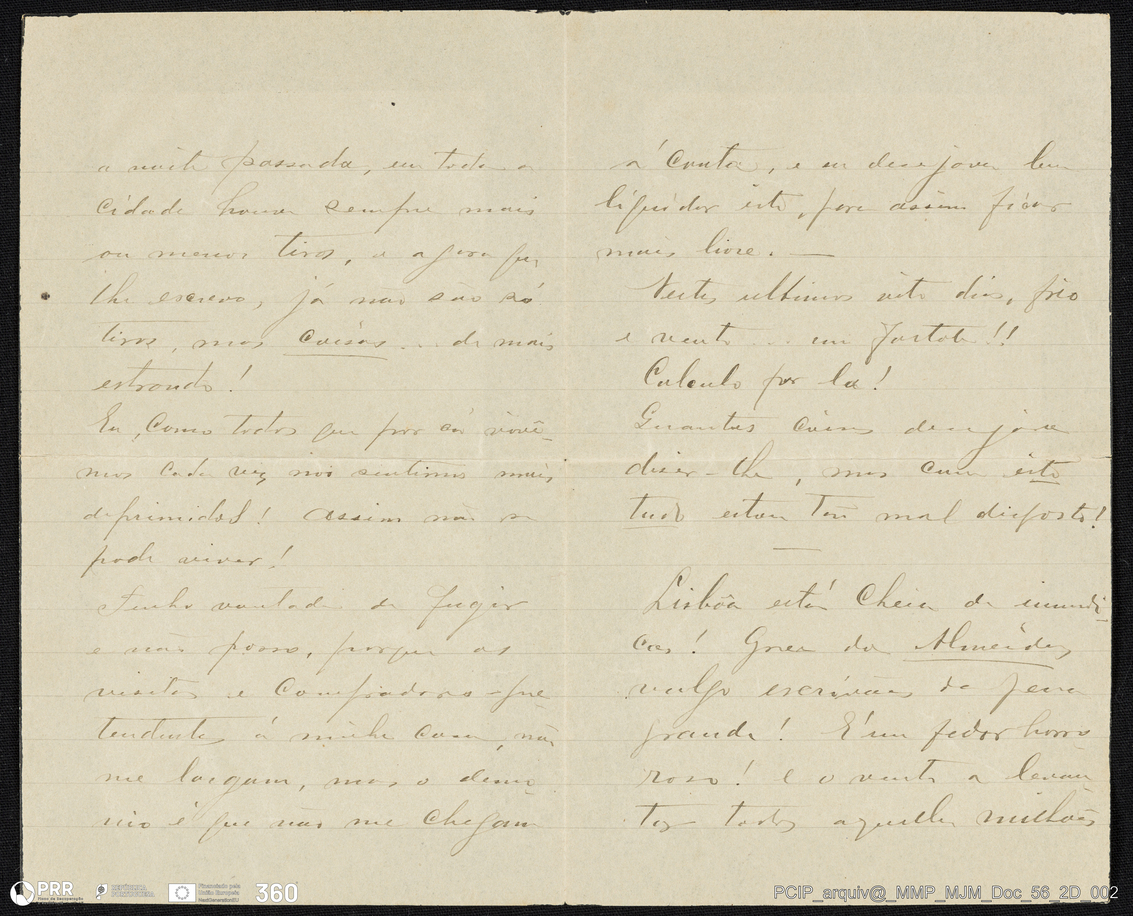 a noite passada, em toda a
cidade houve sempre mais
ou menos tiros, e agora que
lhe escrevo, já não são só
tiros, mas coisas... de mais
estrondo!
Eu, como todos que por cá vivê-
mos cada vez nos sentimos mais
deprimidos! Assim não se
pode viver!
Tenho vontade de fugir
e não posso, porque as
visitas e Compradores-pre
tendentes á minha casa, não
me largam, mas o demo-
nio é que não me chegam
á conta, e eu desejava bem
liquidar isto, para assim ficar
mais livre. —
Nestes ultimos oito dias, frio
e vento... um fartote!!
Calculo por lá!
Quantas coisas desejava
dizer-lhe, mas com isto
tudo estou tão mal disposto!
Lisbôa está cheia de imundi-
ces! Greve dos Almeidas,
vulgo escrivães da pena
grande! É um fedor horro
roso! e o vento a levan
tar todos aquelles milhões
PRR
REPÚBLICA PORTUGUESA
Financiado pela União Europeia
NextGenerationEU
360
PCIP_arquiv@_MMP_MJM_Doc_56_2D_002